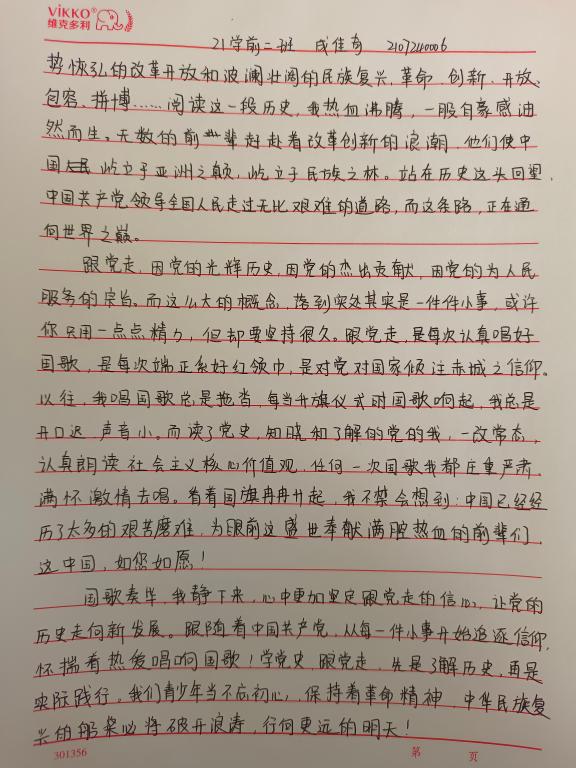 ViKKO®
维克多利
21学前二班 成佳奇 2107240006
势恢弘的改革开放和波澜壮阔的民族复兴,革命、创新、开放、
包容、拼博……阅读这一段历史,我热血沸腾,一股自豪感油
然而生。无数的前辈赶赴着改革创新的浪潮,他们使中
国屹立于亚洲之巅,屹立于民族之林。站在历史这头回望,
中国共产党领导全国人民走过无比艰难的道路,而这条路,正在通
向世界之巅。
跟党走,因党的光辉历史,因党的杰出贡献,因党的为人民
服务的宗旨。而这么大的概念,落到实处其实是一件件小事,或许
你只用一点点精力,但却要坚持很久。跟党走,是每次认真唱好
国歌,是每次端正系好红领巾,是对党对国家倾注赤城之信仰。
以往,我唱国歌总是拖沓,每当升旗仪式时国歌响起,我总是
开口迟、声音小。而读了党史,知晓和了解的党的我,一改常态,
认真朗读社会主义核心价值观,任何一次国歌我都庄重严肃,
满怀激情去唱。看着国旗冉冉升起,我不禁会想到:中国已经经
历了太多的艰苦磨难,为眼前这盛世奉献满腔热血的前辈们,
这中国,如您如愿!
国歌奏毕,我静下来,心中更加坚定跟党走的信心,让党的
历史走向新发展。跟随着中国共产党,从每一件小事开始追逐信仰,
怀揣着热爱唱响国歌!学党史,跟党走,先是了解历史,再是
实际践行。我们青少年当不忘初心,保持着革命精神,中华民族复
兴的船桨必将破开浪涛,行向更远的明天!
301356 第 页